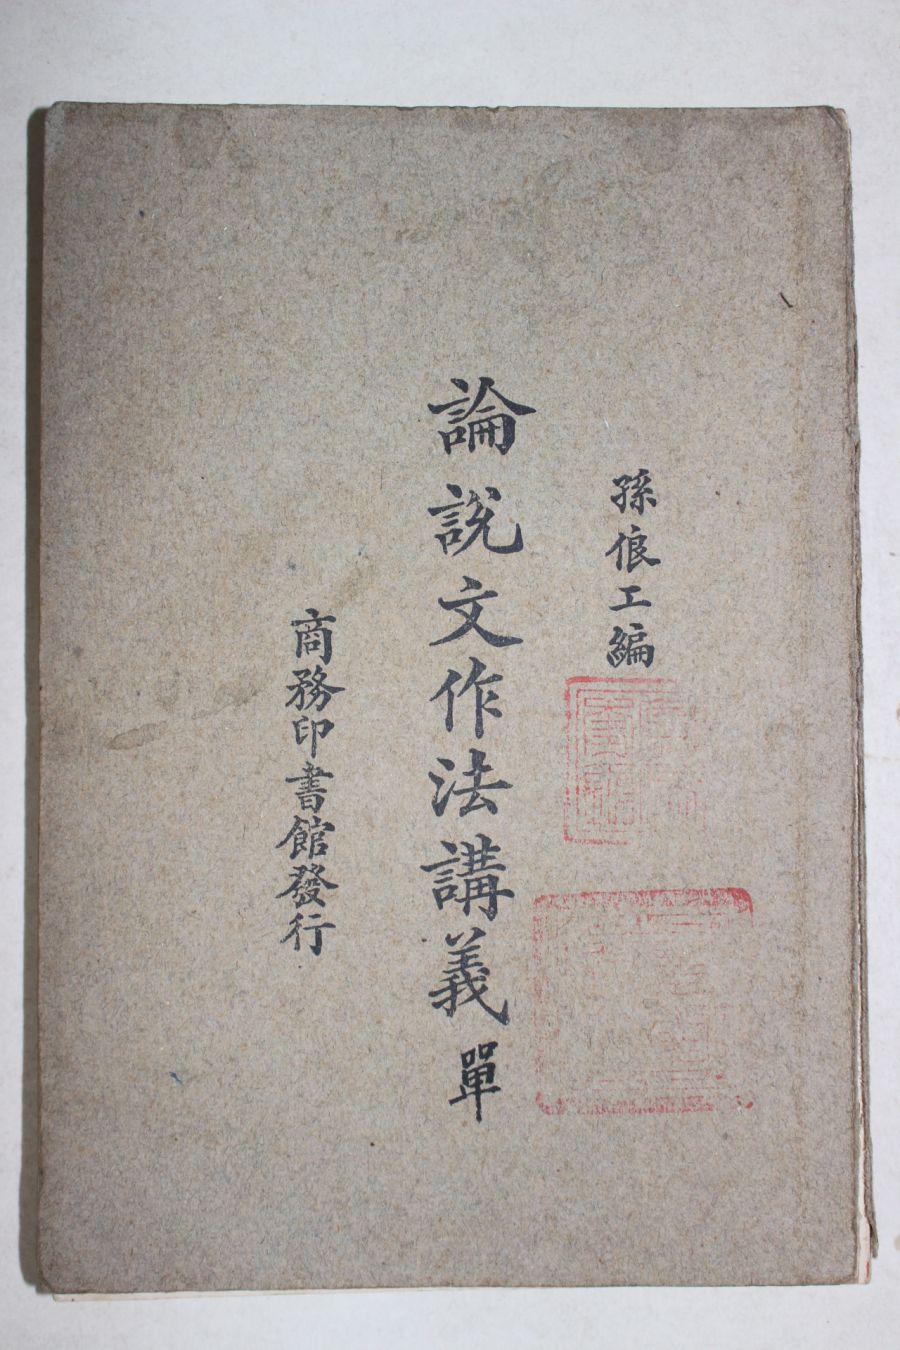 孫俍工編
論說文作法講義 單
商務印書館發行